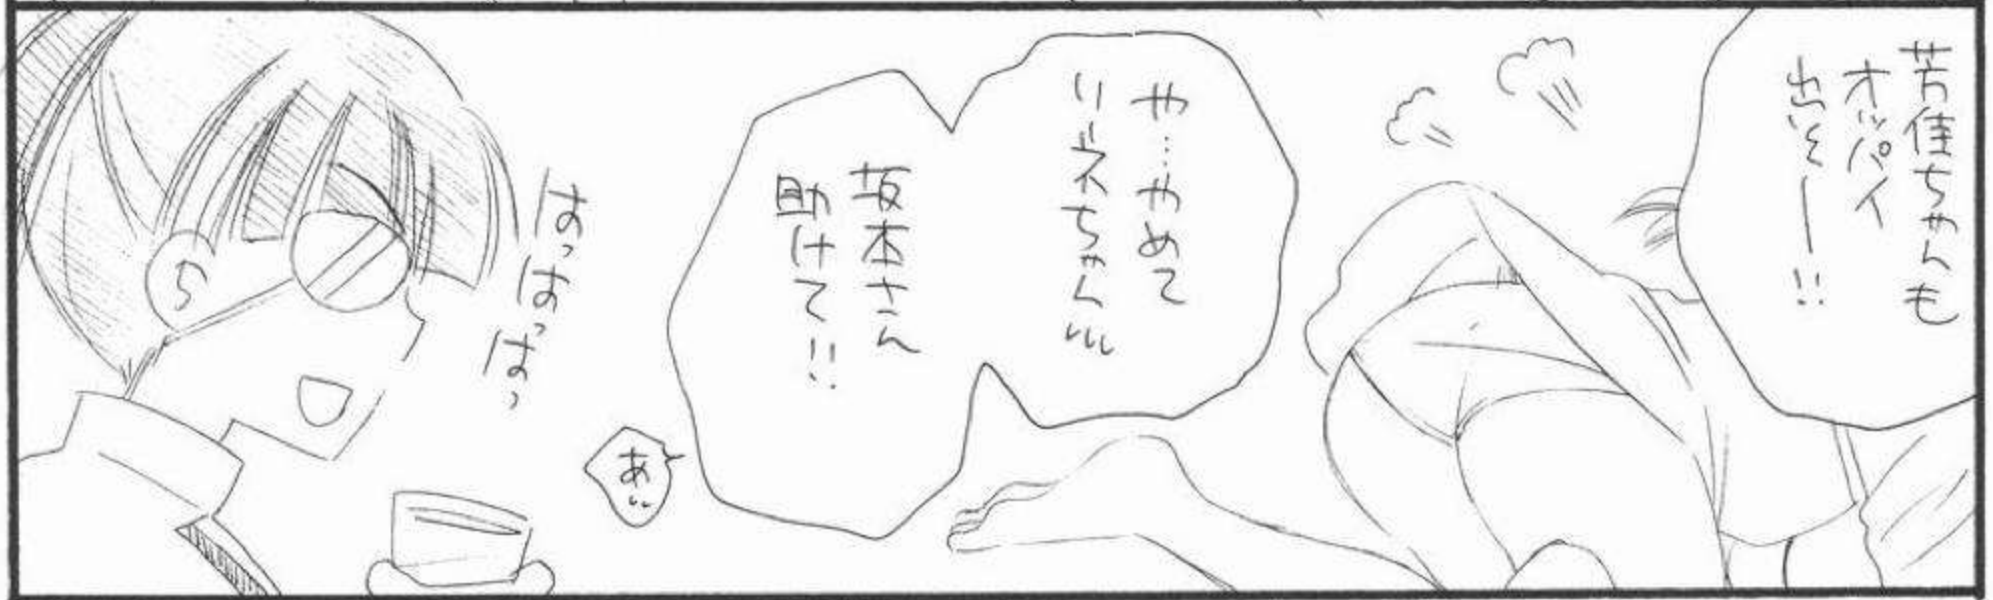 芳佳ちゃんも
オッパイ
出そー!!
や…やめて
リーネちゃん
坂本さん
助けて!!
あ
はっはっはっ